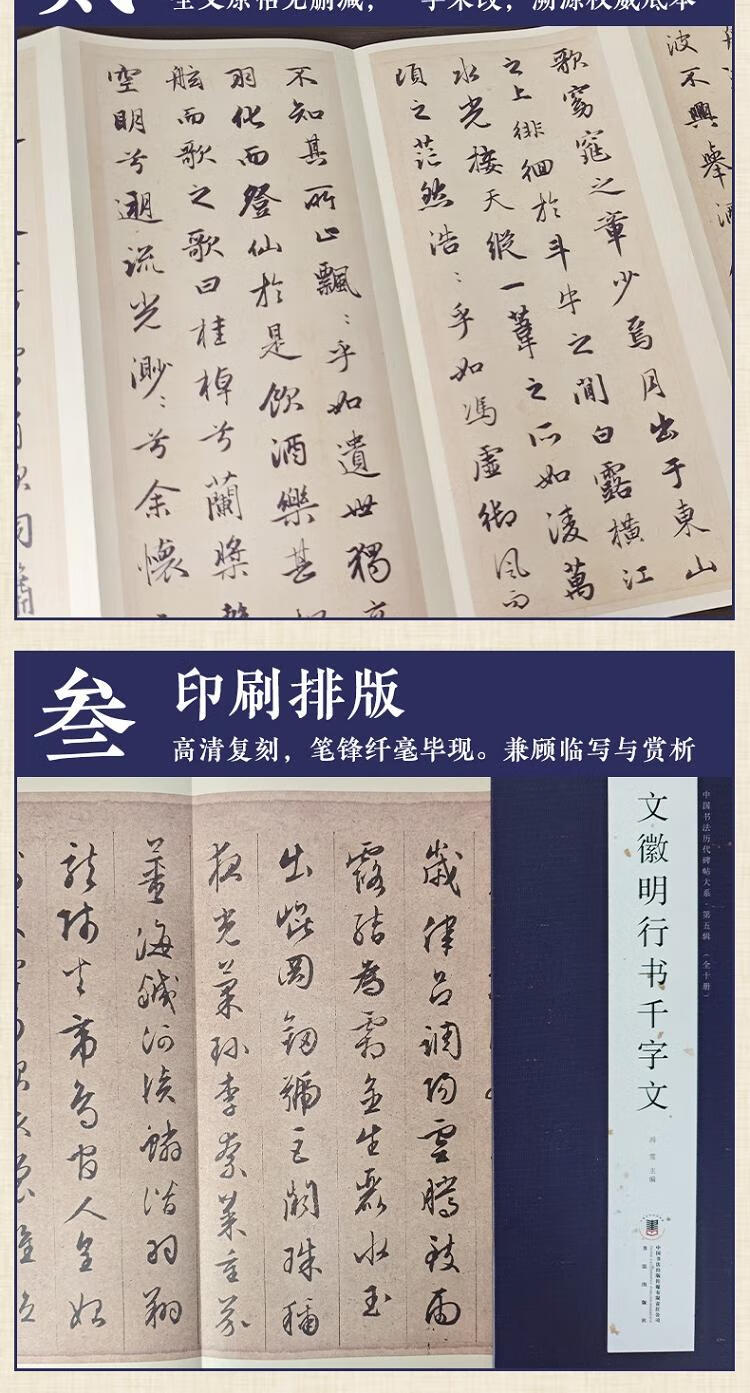 全文原帖无删减，一字未改，溯源权威底本
波不興舉酒
歌窈窕之章少焉月出于東山
之上徘徊於斗牛之間白露橫江
水光接天縱一葦之所如淩萬
頃之茫然浩：乎如馮虛御風而
不知其所止飄：乎如遺世獨立
羽化而登仙於是飲酒樂甚
舷而歌之歌曰桂棹兮蘭槳擊
空明兮遡流光渺：兮余懷
叁
印刷排版
高清复刻，笔锋纤毫毕现。兼顾临写与赏析
中国书法历代碑帖大系·第五辑（全十册）
文徽明行书千字文
主编
书法出版社
歲律呂調陽雲騰致雨
露結為霜金生麗水玉
出崑岡劍號巨闕珠稱
夜光菓珍李柰菜重芥
薑海鹹河淡鱗潛羽翔
龍師火帝鳥官人皇始